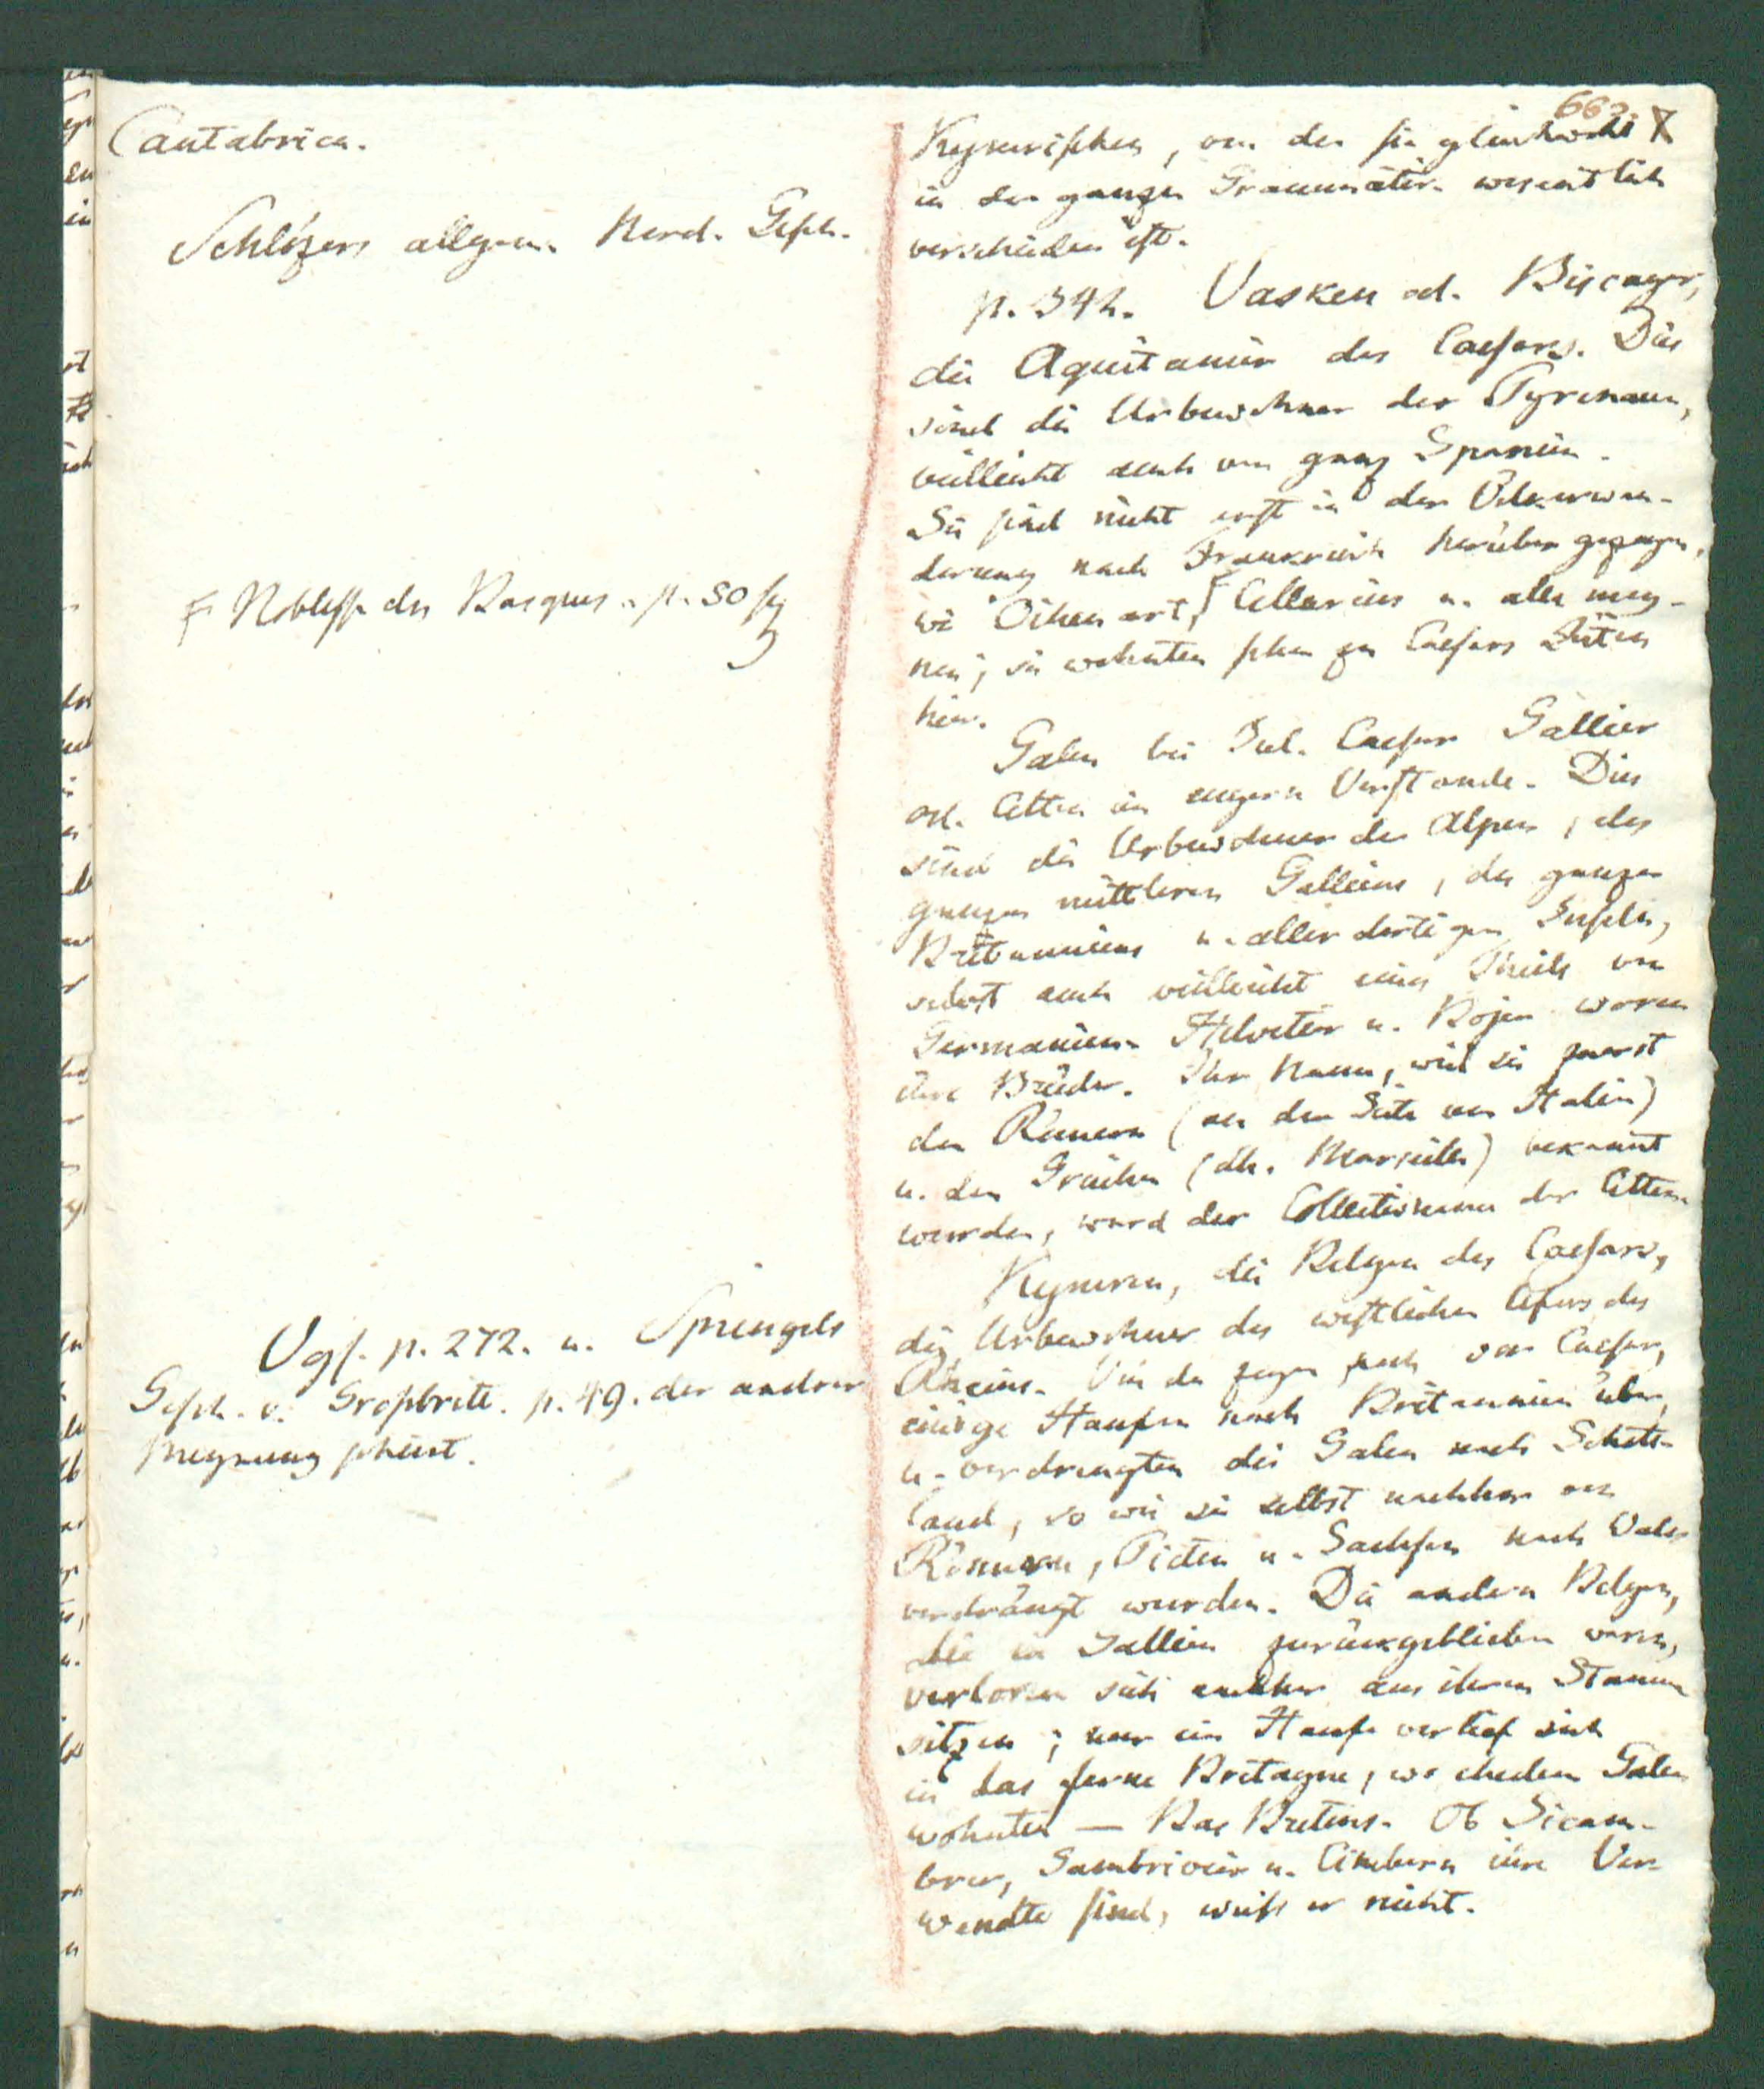 Cantabrica.
Schlözers allgem. Nord. Gesch.
Noblesse des Basques. p. 50 sq
Vgl. p. 272. u. Sprengels
Gesch. v. Großbritt. p. 49. der andrer
Meynung scheint.
662.
Kymrischen, von der sie gleichwohl
in der ganzen Grammatik wesentlich
verschieden ist.
p. 342. Vasken od. Biscayer,
die Aquitanier des Caesars. Dies
sind die Urbewohner der Pyrenaeen,
vielleicht auch von ganz Spanien.
Sie sind nicht erst in der Völkerwan-
derung nach Frankreich herüber gezogen,
wie Oihenart, Cellarius u. alle mey-
nen; sie wohnten schon zu Caesars Zeiten
hier.
Galen bei Jul. Caesar Gallier
od. Celten im engern Verstande. Dies
sind die Urbewohner der Alpen, des
ganzen mittleren Galliens, des ganzen
Britanniens u. aller dortigen Inseln,
selbst auch vielleicht eines Theils von
Germanien. Helvetier u. Bojen waren
ihre Brüder. Ihr Name, weil sie zuerst
den Römern (an der Seite von Italien)
u. den Griechen (bei Marseille) bekannt
wurden, ward der Collectivname der Celten.
Kymren, die Belgen des Caesars,
die Urbewohner des westlichen Ufers des
Rheins. Von da zogen, noch vor Caesar,
einige Haufen nach Britannien über,
u. verdrengten die Galen nach Schott-
land, so wie sie selbst nachher von
Römern, Picten u. Sachsen nach Wales
verdrängt wurden. Die andern Belgen,
die in Gallien zurückgeblieben waren,
verloren sich nachher aus ihren Stamm
sitzen; nur ein Haufe verlief sich
in das ferne Bretagne, wo ehedem Galen
wohnten — Bas Bretons. Ob Sicam-
brer, Gambrivier u. Cimbern ihre Ver-
wandte sind, weiß er nicht.